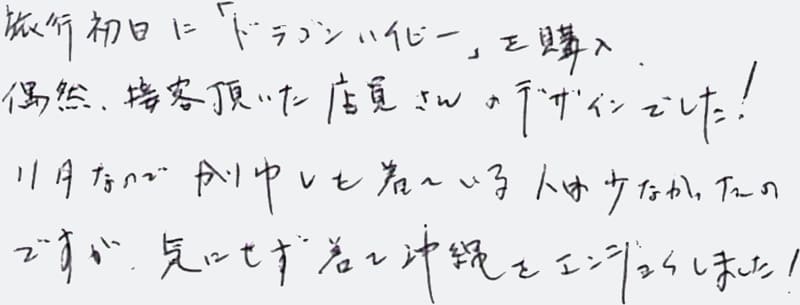 旅行初日に「ドラゴンハイビー」を購入.
偶然、接客頂いた店員さんのデザインでした!
11月なのでかりゆしを着ている人は少なかったの
ですが、気にせず着て沖縄をエンジョイしました!